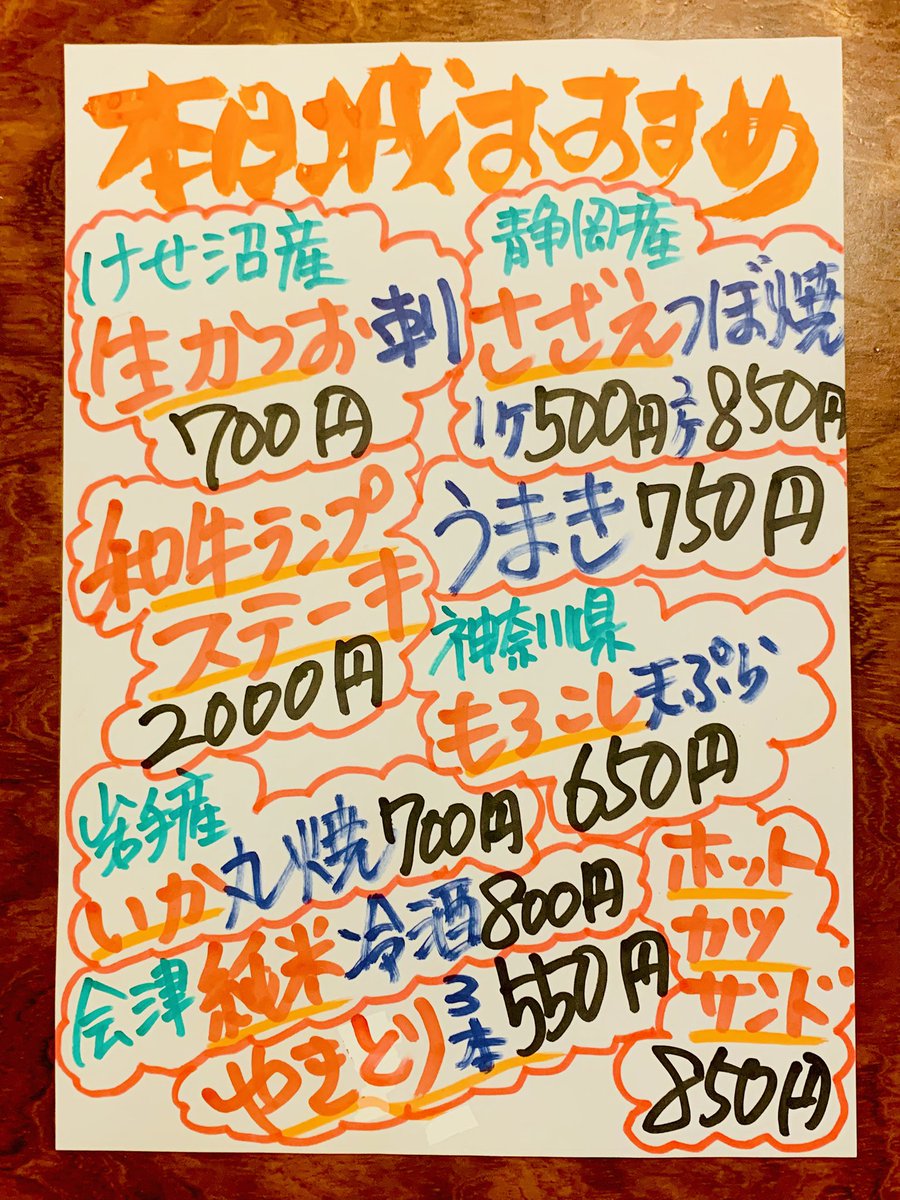 本日城おすすめ
けせ沼産
生かつお刺
700円
静岡産
さざえつぼ焼
1ケ500円2ケ850円
和牛ランプ
ステーキ
2000円
うまき750円
神奈川県
もろこし天ぷら
650円
岩手産
いか丸焼700円
会津純米冷酒800円
やきとり3本550円
ホット
カツ
サンド
850円